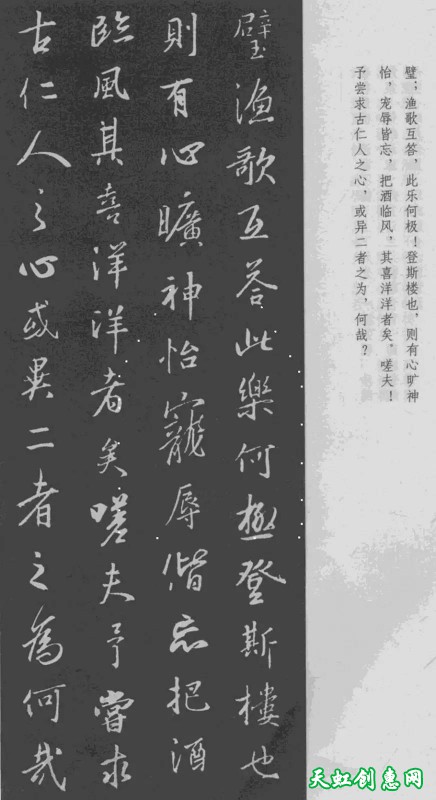 璧；渔歌互答，此乐何极！登斯楼也，则有心旷神
怡，宠辱皆忘，把酒临风，其喜洋洋者矣。嗟夫！
予尝求古仁人之心，或异二者之为，何哉？
璧漁歌互答此樂何極登斯樓也
則有心曠神怡寵辱偕忘把酒
臨風其喜洋洋者矣嗟夫予嘗求
古仁人之心或異二者之為何哉
天虹创惠网